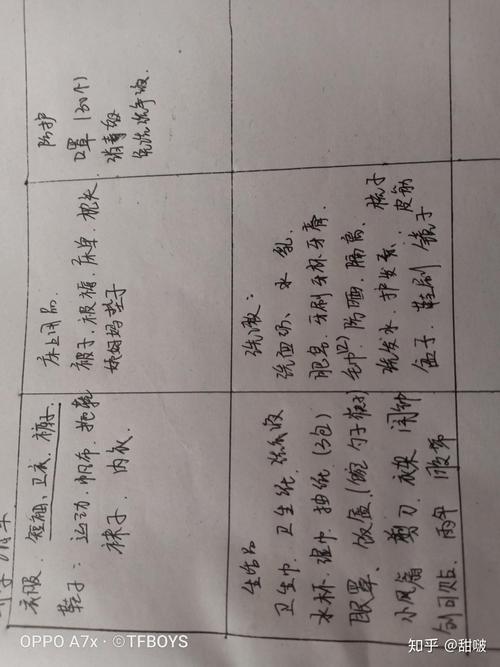 衣服：短袖、卫衣、裤子
鞋子：运动、帆布、拖鞋
袜子、内衣
床上用品：
被子、被褥、床单、枕头
垫子
防护
口罩（30个）
消毒液
免洗洗手液
生活品
卫生巾、卫生纸、洗衣液
水杯、湿巾、抽纸（3包）
眼罩、饭盒、（碗、勺子、筷子）
小风扇、剪刀、衣架、闹钟
创可贴、雨伞
洗漱：
洗面奶、水、乳
眼皂、牙刷、牙杯、牙膏
毛巾（2）、防晒、隔离
洗发水、护发素、梳子
盆子、鞋刷、镜子、皮筋
OPPO A7x · ©TFBOYS
知乎 @甜啵